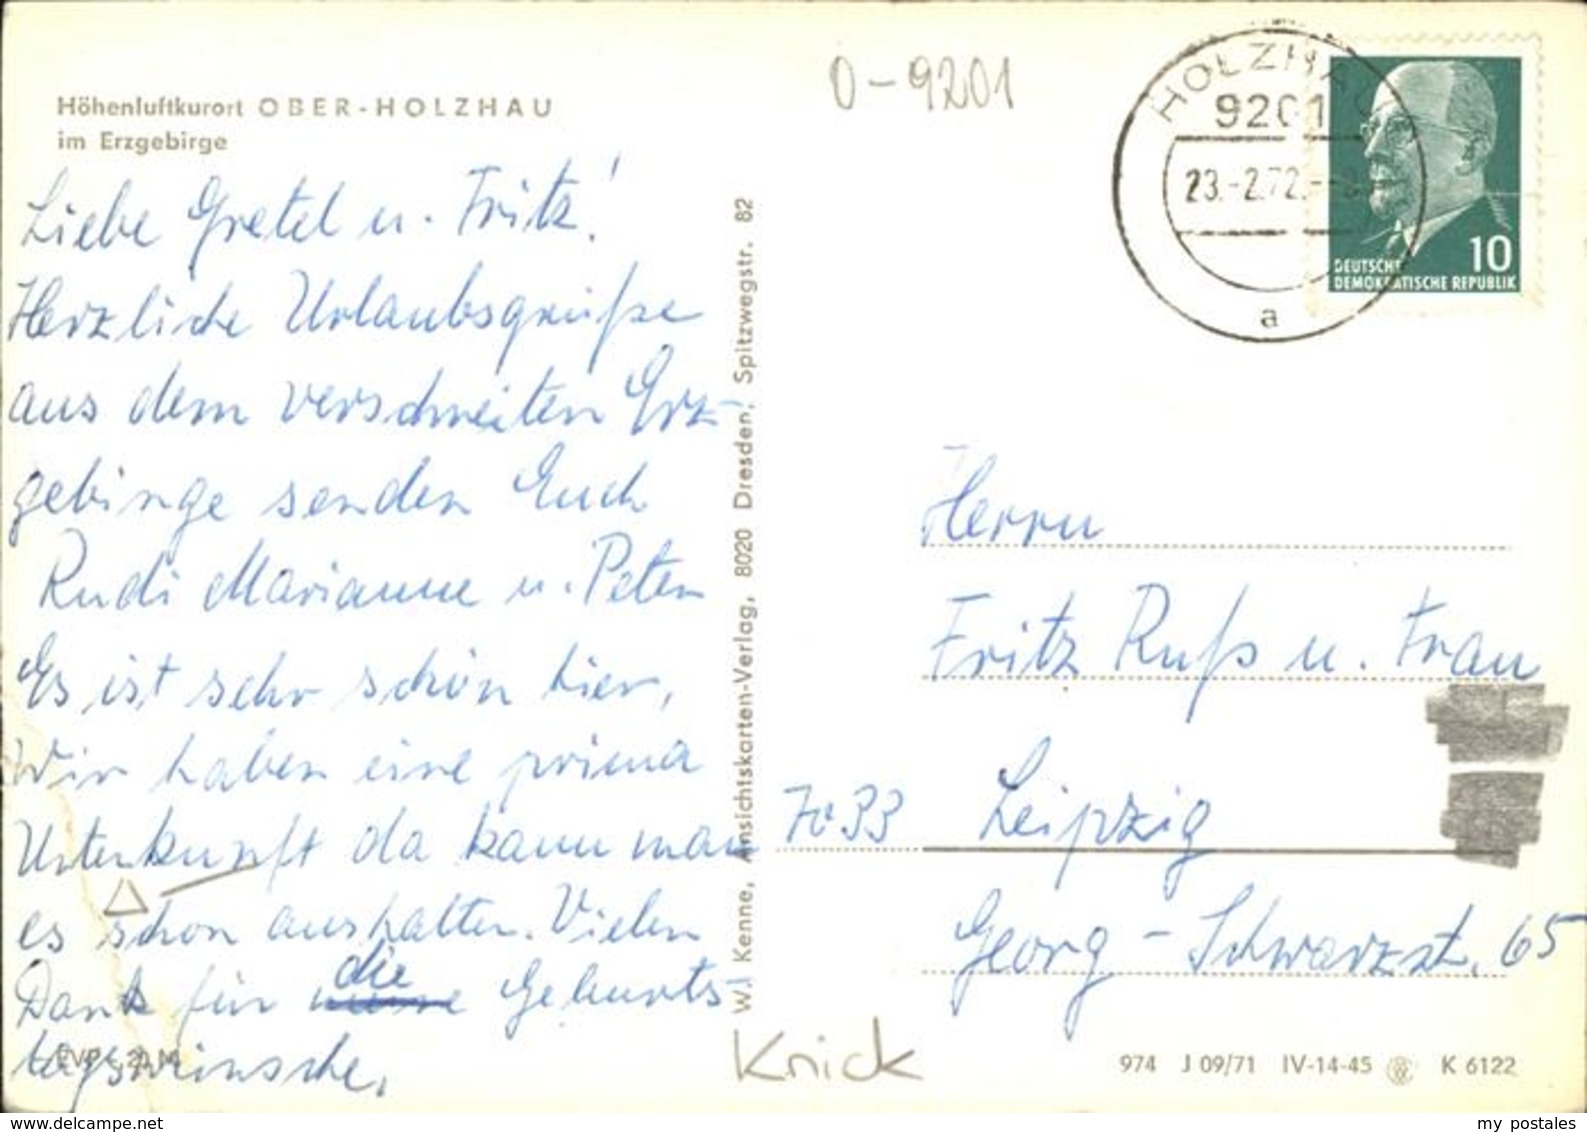 Höhenluftkurort OBER-HOLZHAU
im Erzgebirge
Liebe Gretel u. Fritz!
Herzliche Urlaubsgrüße
aus dem verschneiten Erz-
gebirge senden Euch
Rudi Marianne u. Peter
Es ist sehr schön hier,
Wir haben eine prima
Unterkunft da kann man
es schon aushalten. Vielen
Dank für die Geburts-
tagswünsche.
EVP -,20 M
W. Kenne, Ansichtskarten-Verlag, 8020 Dresden, Spitzwegstr. 82
0-9201
HOLZHAU
9201
23.-2.72.
a
10
DEUTSCHE
DEMOKRATISCHE REPUBLIK
Herrn
Fritz Ruß u. Frau
7033 Leipzig
Georg-Schwarzst. 65
Knick
974 J 09/71 IV-14-45 K 6122
www.delcampe.net
my postales